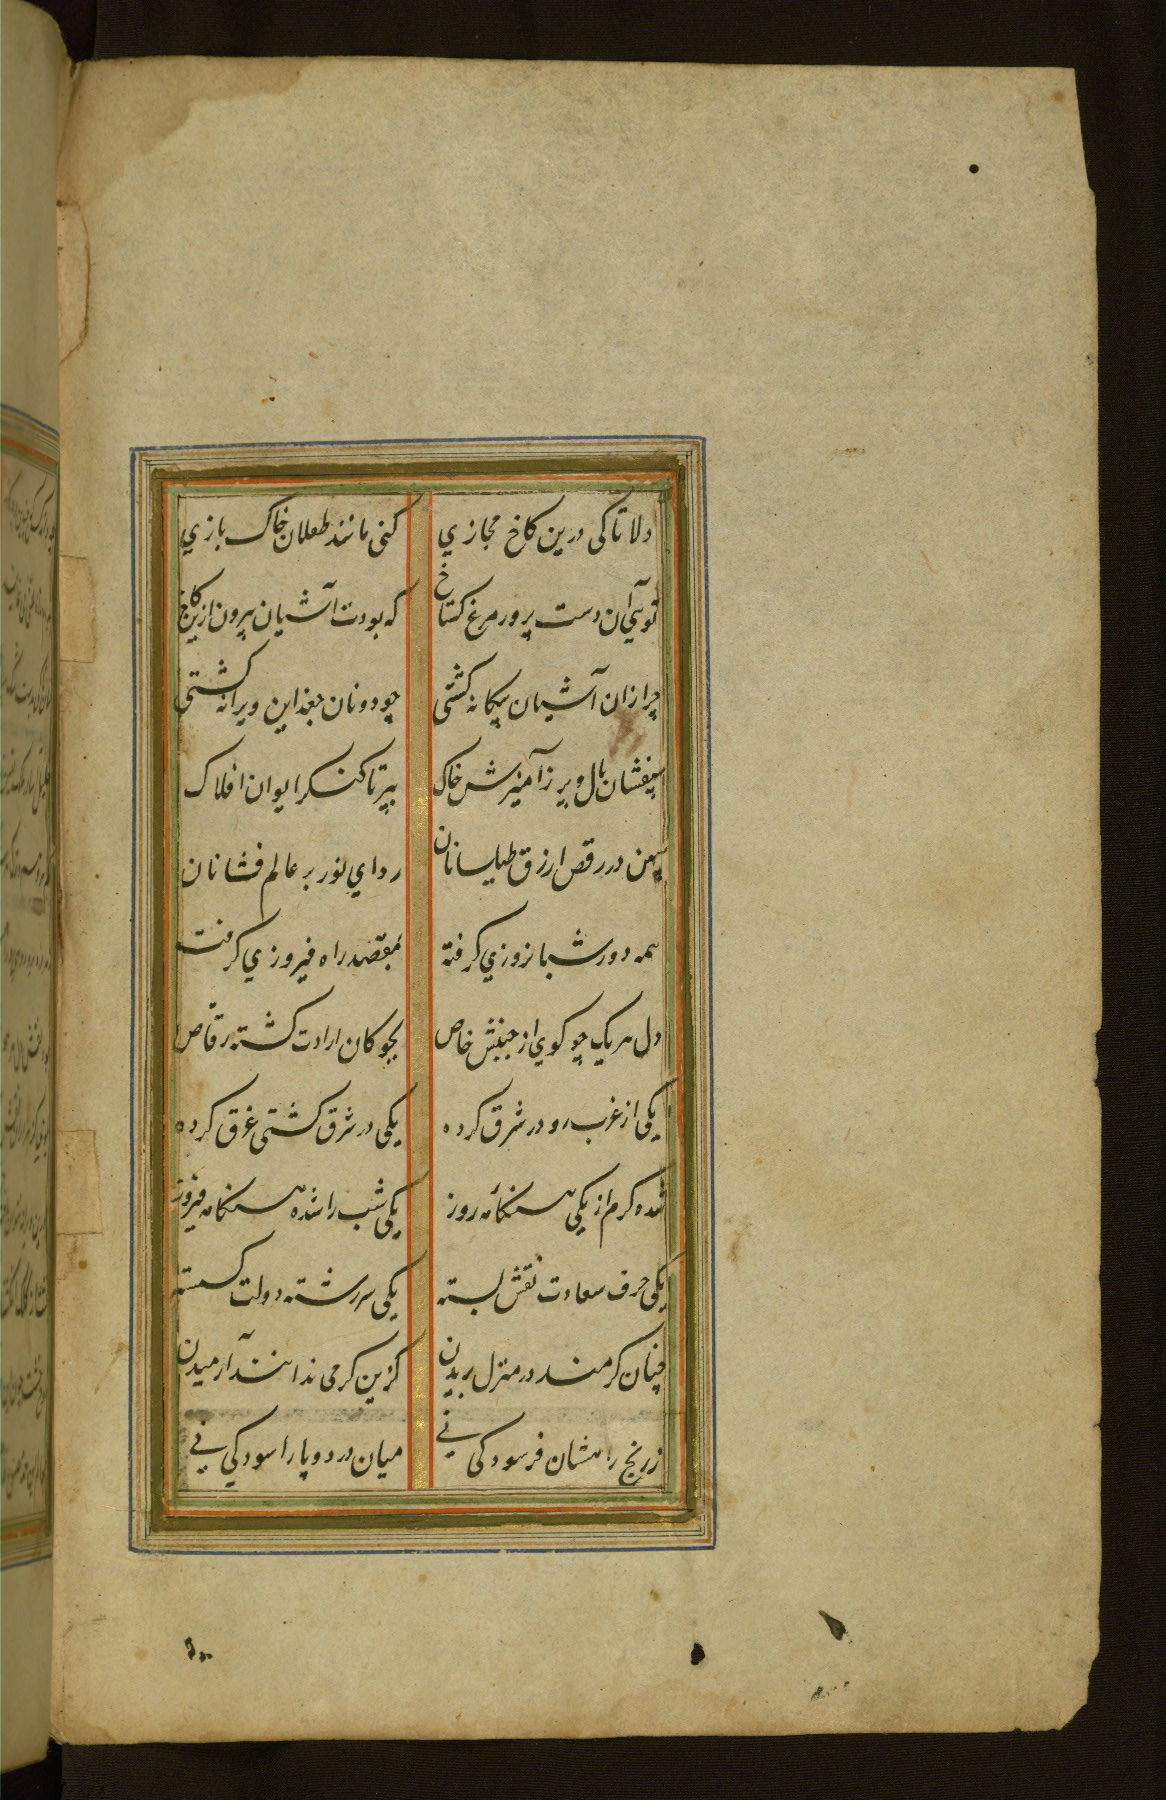 دلا تا کی درین کاخ مجازي کنی مانند طفلان خاک بازي
تویی آن دست پرور مرغ کستاخ که بودت آشیان بیرون ازین کاخ
چرا زان آشیان بیکانه کشتی چو دونان جغد این ویرانه کشتی
بیفشان بال و پر ز آمیزش خاک بپر تا کنکر ایوان افلاک
ببین در رقص ارزق طیلسانان رداي نور بر عالم فشانان
همه دور شبانروزي کرفته بمقصد راه فیروزي کرفته
دل هر یک چو کوي از جنبش خاص بچوکان ارادت کشته رقاص
یکی از غرب رو در شرق کرده یکی در شرق کشتی غرق کرده
شده کرم از یکی هنکامه روز یکی شب را شده هنکامه فیروز
یکی حرف سعادت نقش بسته یکی سر رشته دولت کسسته
چنان کرمند در منزل بریدن کزین کرمی ندانند آرمیدن
ز رنج راهشان فرسودکی نی میان درد و پا را سودکی نی